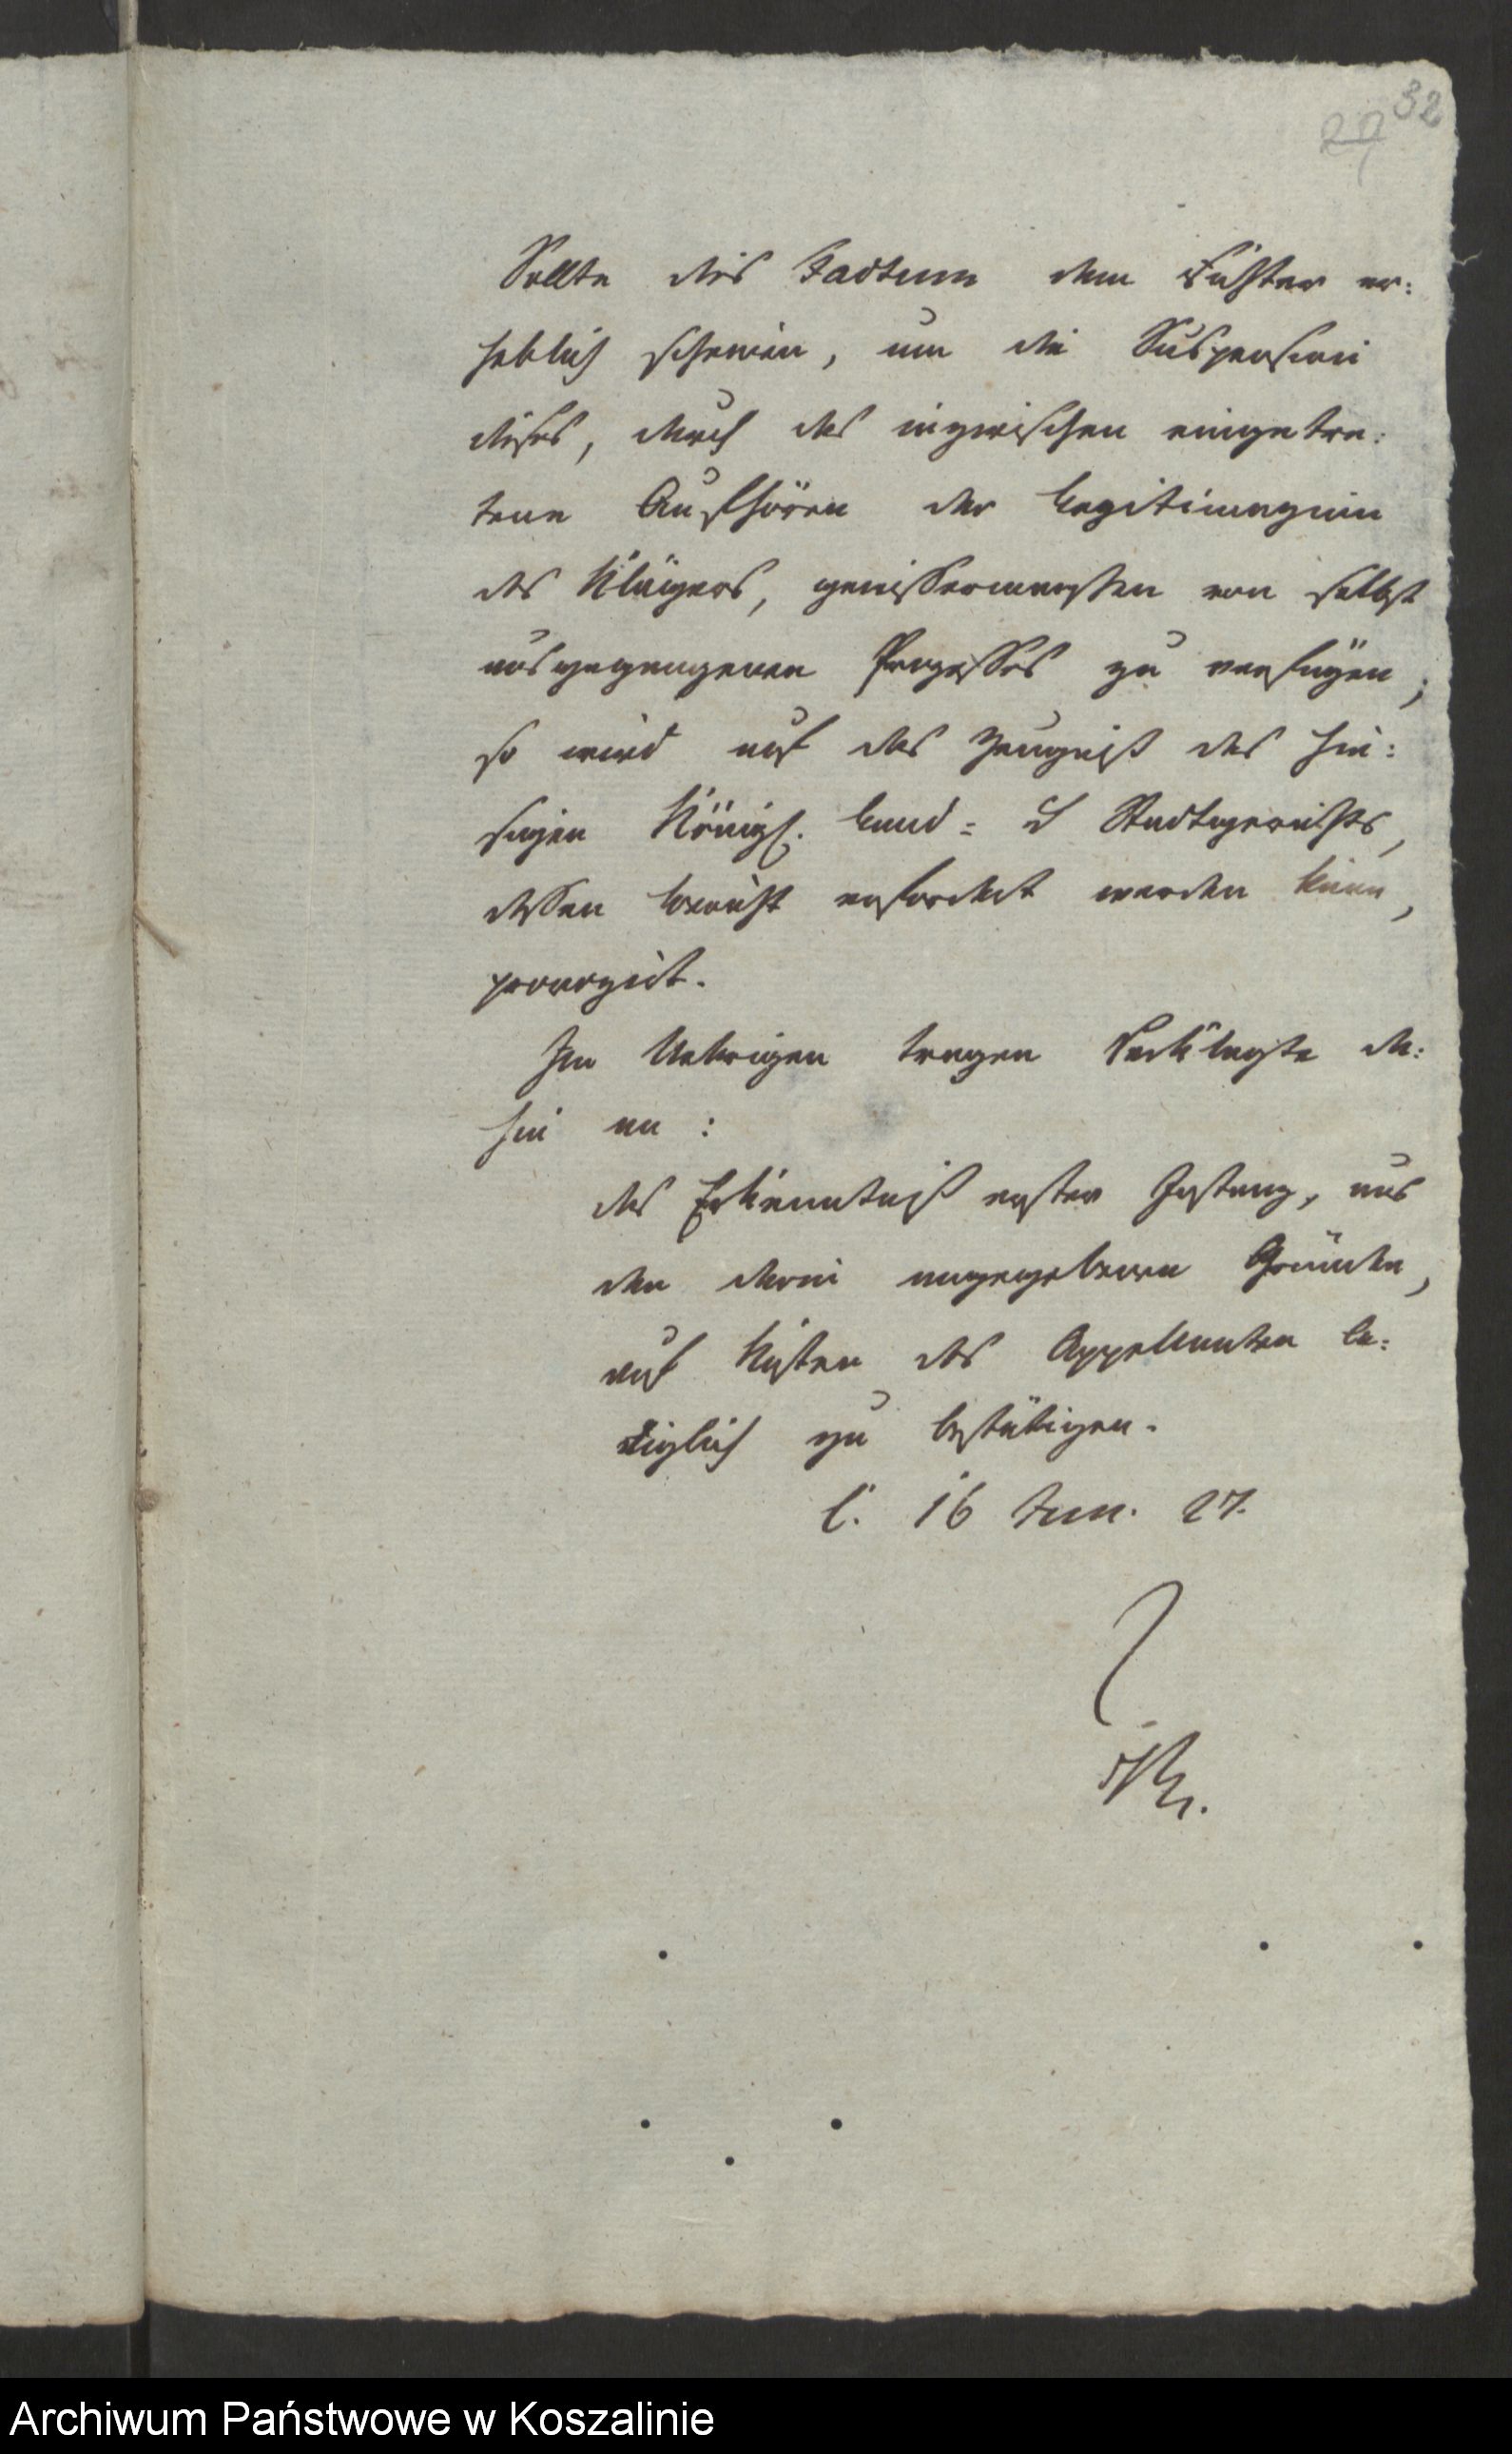 32
27
Sollte dies Factum dem Richter er:
heblich scheinen, um die Suspension
dieses, durch das inzwischen eingetre:
tene Aufhören der Legitimazion
des Klägers, gewissermaaßen von selbst
ausgegangenen Prozesses zu verfügen,
so wird auf das Zeugniß des hie:
sigen Königl. Land= u Stadtgerichts,
dessen Bericht erfordert werden kann,
provozirt.
Im Uebrigen tragen Verklagte da:
hin an :
das Erkenntniß erster Instanz, aus
den darin angegebenen Gründen,
auf Kosten des Appellanten le:
diglich zu bestätigen.
C. 16 Jun. 27.
Archiwum Państwowe w Koszalinie